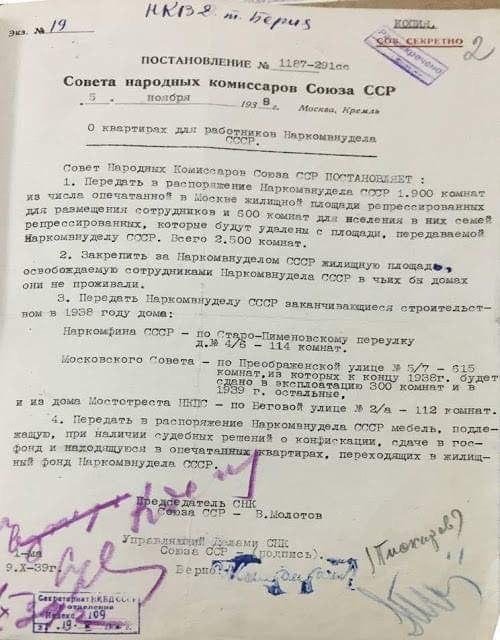 НКВД т. Берия
Экз. № 19
КОПИЯ.
СОВ. СЕКРЕТНО
Рассекречено
2
ПОСТАНОВЛЕНИЕ № 1187-291сс
Совета народных комиссаров Союза ССР
5 . ноября 1938 г. Москва, Кремль
О квартирах для работников Наркомвнудела
СССР.
Совет Народных Комиссаров Союза ССР ПОСТАНОВЛЯЕТ :
1. Передать в распоряжение Наркомвнудела СССР 1.900 комнат
из числа опечатанной в Москве жилищной площади репрессированных
для размещения сотрудников и 600 комнат для вселения в них семей
репрессированных, которые будут удалены с площади, передаваемой
Наркомвнуделу СССР. Всего 2.500 комнат.
2. Закрепить за Наркомвнуделом СССР жилищную площадь,
освобождаемую сотрудниками Наркомвнудела СССР в чьих бы домах
они не проживали.
3. Передать Наркомвнуделу СССР заканчивающиеся строительст-
вом в 1938 году дома:
Наркомфина СССР - по Старо-Пименовскому переулку
д.№ 4/6 - 114 комнат.
Московского Совета - по Преображенской улице № 5/7 - 615
комнат,из которых к концу 1938г. будет
сдано в эксплоатацию 300 комнат и в
1939 г. остальные,
и из дома Мостотреста НКПС - по Беговой улице № 2/а - 112 комнат.
4. Передать в распоряжение Наркомвнудела СССР мебель, подле-
жащую, при наличии судебных решений о конфискации, сдаче в гос-
фонд и находящуюся в опечатанных квартирах, переходящих в жилищ-
ный фонд Наркомвнудела СССР.
Председатель СНК
Союза ССР - В.Молотов
Управляющий Делами СНК
Союза ССР - (подпись).
1-ма
9.X-39г.
Верно:
Секретариат НКВД СССР
отделение
Индекс 109
19